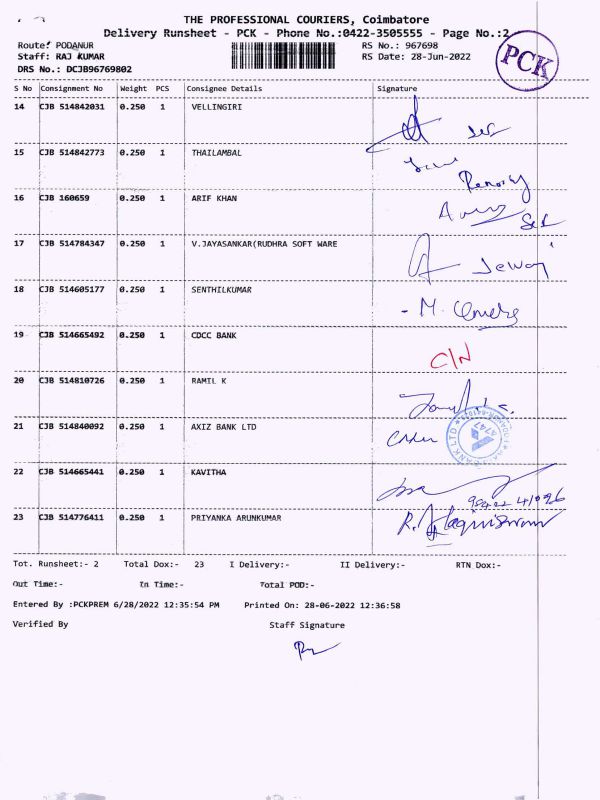 THE PROFESSIONAL COURIERS, Coimbatore
Delivery Runsheet - PCK - Phone No.:0422-3505555 - Page No.:2
Route: PODANUR RS No.: 967698
Staff: RAJ KUMAR RS Date: 28-Jun-2022
DRS No.: DCJB96769802
PCK
S No Consignment No Weight PCS Consignee Details Signature
14 CJB 514842031 0.250 1 VELLINGIRI
15 CJB 514842773 0.250 1 THAILAMBAL
16 CJB 160659 0.250 1 ARIF KHAN
17 CJB 514784347 0.250 1 V.JAYASANKAR(RUDHRA SOFT WARE
18 CJB 514605177 0.250 1 SENTHILKUMAR
19 CJB 514665492 0.250 1 CDCC BANK C/N
20 CJB 514810726 0.250 1 RAMIL K
21 CJB 514840092 0.250 1 AXIZ BANK LTD
22 CJB 514665441 0.250 1 KAVITHA
23 CJB 514776411 0.250 1 PRIYANKA ARUNKUMAR
Tot. Runsheet:- 2 Total Dox:- 23 I Delivery:- II Delivery:- RTN Dox:-
Out Time:- In Time:- Total POD:-
Entered By :PCKPREM 6/28/2022 12:35:54 PM Printed On: 28-06-2022 12:36:58
Verified By Staff Signature